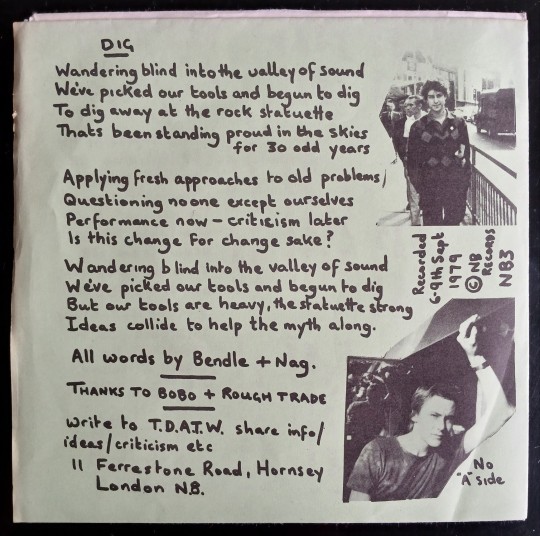 DIG
Wandering blind into the valley of sound
We've picked our tools and begun to dig
To dig away at the rock statuette
Thats been standing proud in the skies
for 30 odd years
Applying fresh approaches to old problems/
Questioning noone except ourselves
Performance now - criticism later
Is this change for change sake?
Wandering blind into the valley of sound
We've picked our tools and begun to dig
But our tools are heavy, the statuette strong
Ideas collide to help the myth along.
All words by Bendle + Nag.
THANKS TO BOBO + ROUGH TRADE
write to T.D.A.T.W. share info/
ideas/criticism etc
11 Ferrestone Road, Hornsey
London N8.
Recorded
6-9th Sept
1979
© NB
RECORDS
NB3
No
"A" side